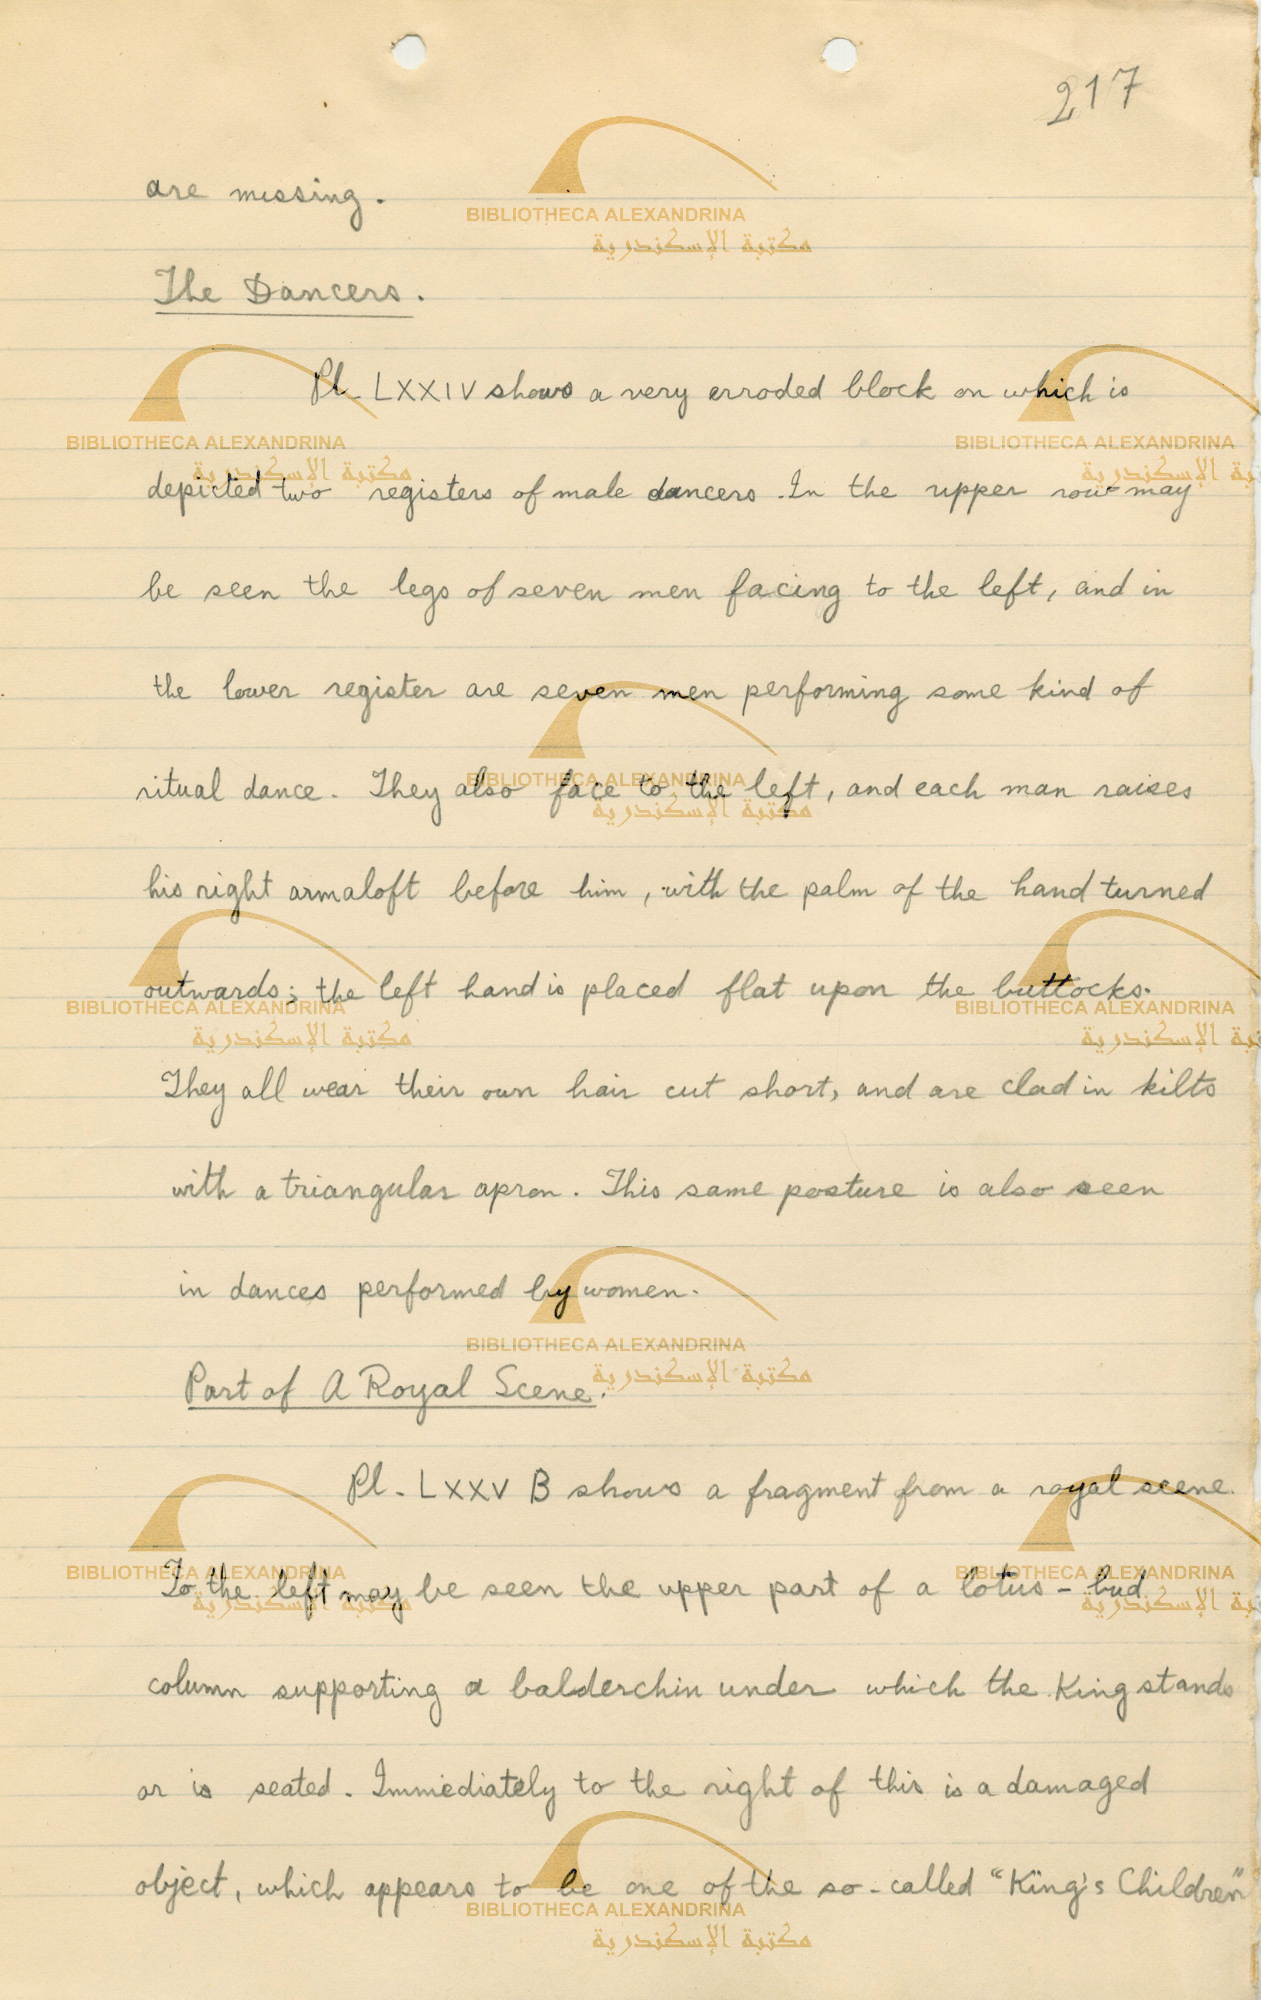 217
are missing.
The Dancers.
Pl. LXXIV shows a very erroded block on which is
depicted two registers of male dancers. In the upper row may
be seen the legs of seven men facing to the left, and in
the lower register are seven men performing some kind of
ritual dance. They also face to the left, and each man raises
his right arm aloft before him, with the palm of the hand turned
outwards; the left hand is placed flat upon the buttocks.
They all wear their own hair cut short, and are clad in kilts
with a triangular apron. This same posture is also seen
in dances performed by women.
Part of A Royal Scene.
Pl. LXXV B shows a fragment from a royal scene.
To the left may be seen the upper part of a lotus-bud
column supporting a balderchin under which the King stands
or is seated. Immediately to the right of this is a damaged
object, which appears to be one of the so-called "King's Children"
BIBLIOTHECA ALEXANDRINA
مكتبة الإسكندرية